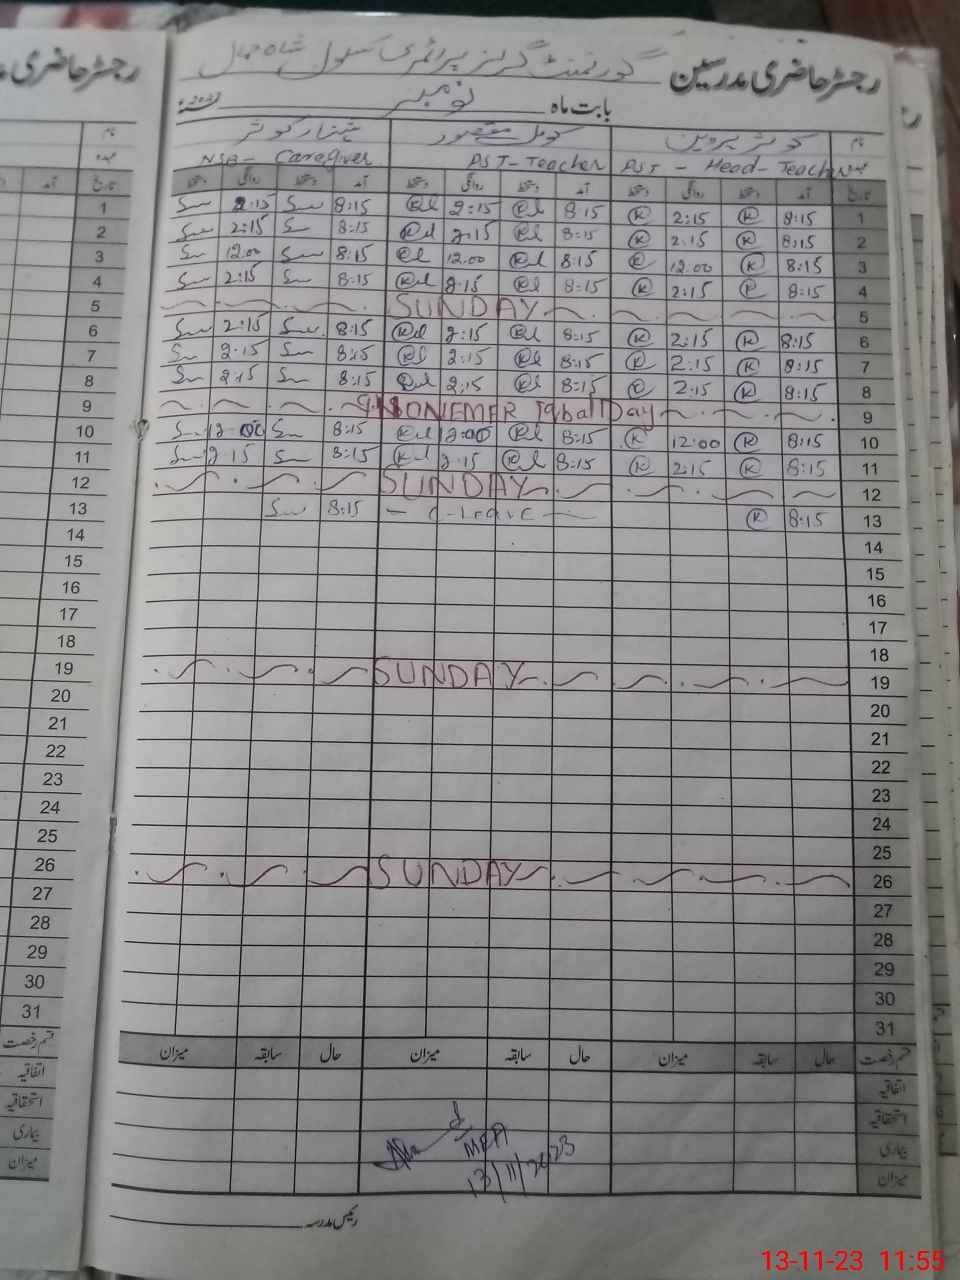 رجسٹر حاضری مدرسین گورنمنٹ گرلز پرائمری سکول شاہ جمال
بابت ماہ نومبر
نام کوثر پروین کومل مقصور کوثر
PST - Head-Teacher PST-Teacher NSB- Caregiver
تاریخ آمد دستخط روانگی دستخط آمد دستخط روانگی دستخط آمد دستخط روانگی دستخط
1 8:15 K 2:15 K 8:15 2:15 8:15 2:15
2 8:15 K 2:15 K 8:15 2:15 8:15 2:15
3 8:15 K 12.00 K 8:15 12.00 8:15 12.00
4 8:15 2:15 K 8:15 2:15 8:15 2:15
5 SUNDAY
6 8:15 K 2:15 K 8:15 2:15 8:15 2:15
7 8:15 K 2:15 K 8:15 2:15 8:15 2:15
8 8:15 K 2:15 K 8:15 2:15 8:15 2:15
9 9 NONEMER Iqball Day
10 8:15 K 12:00 K 8:15 12:00 8:15 12:00
11 8:15 K 2:15 K 8:15 2:15 8:15 2:15
12 SUNDAY
13 8:15 K - C-Leave - 8:15
14
15
16
17
18
19 SUNDAY
20
21
22
23
24
25
26 SUNDAY
27
28
29
30
31
قسم رخصت حال سابقہ میزان حال سابقہ میزان حال سابقہ میزان
اتفاقیہ
استحقاقیہ
بیماری
میزان
MEA
13/11/2023
رئیس مدرسہ
رجسٹر حاضری
نام
عہدہ
تاریخ آمد
1
2
3
4
5
6
7
8
9
10
11
12
13
14
15
16
17
18
19
20
21
22
23
24
25
26
27
28
29
30
31
قسم رخصت
اتفاقیہ
استحقاقیہ
بیماری
میزان
13-11-23 11:55